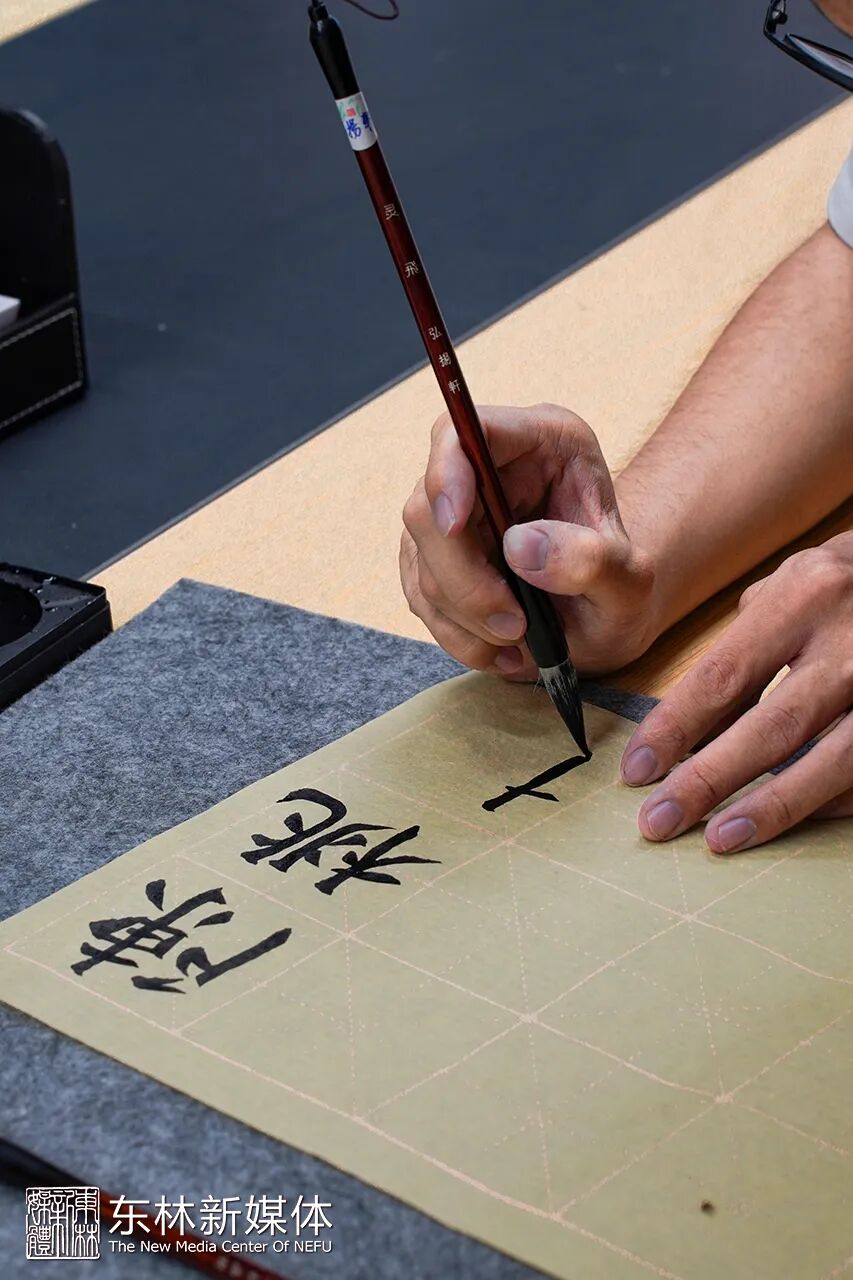 灵飛 弘揚軒
桃
東林新媒體
东林新媒体
The New Media Center Of NEFU